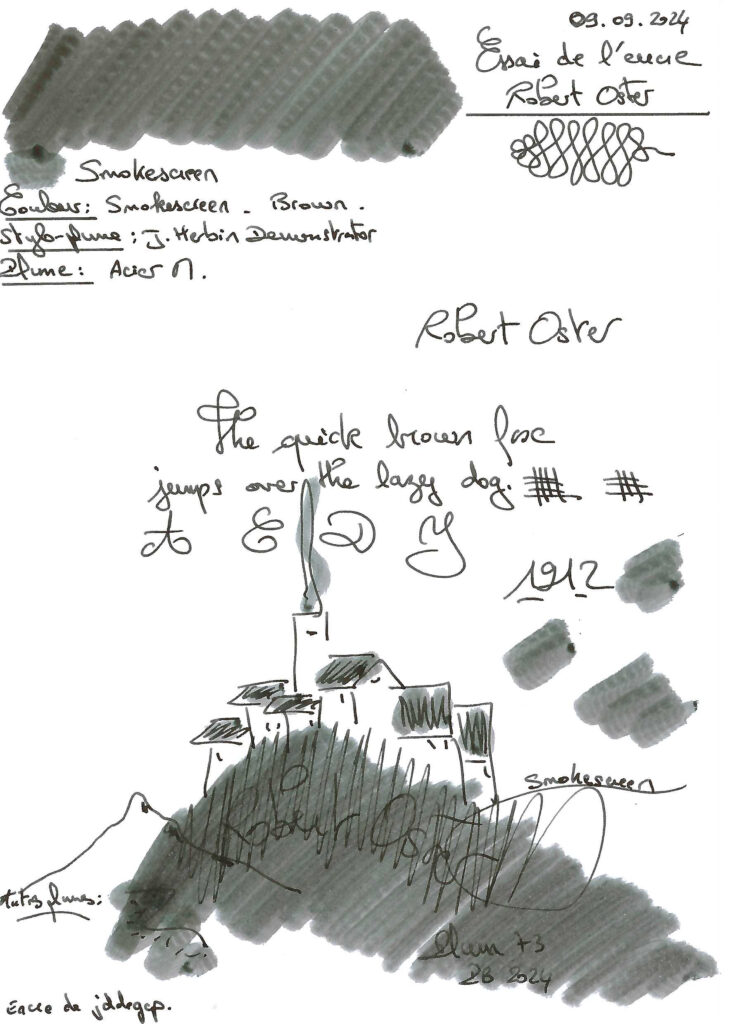 09.09.2024
Essai de l'encre
Robert Oster
Smokescreen
Couleur: Smokescreen - Brown.
Stylo-plume: J. Herbin Demonstrator
Plume: Acier M.
Robert Oster
The quick brown fox
jumps over the lazy dog.
A E D Y
1912
Smokescreen
Robert Oster
Autres plumes:
73
2024
Encre de jddegep.